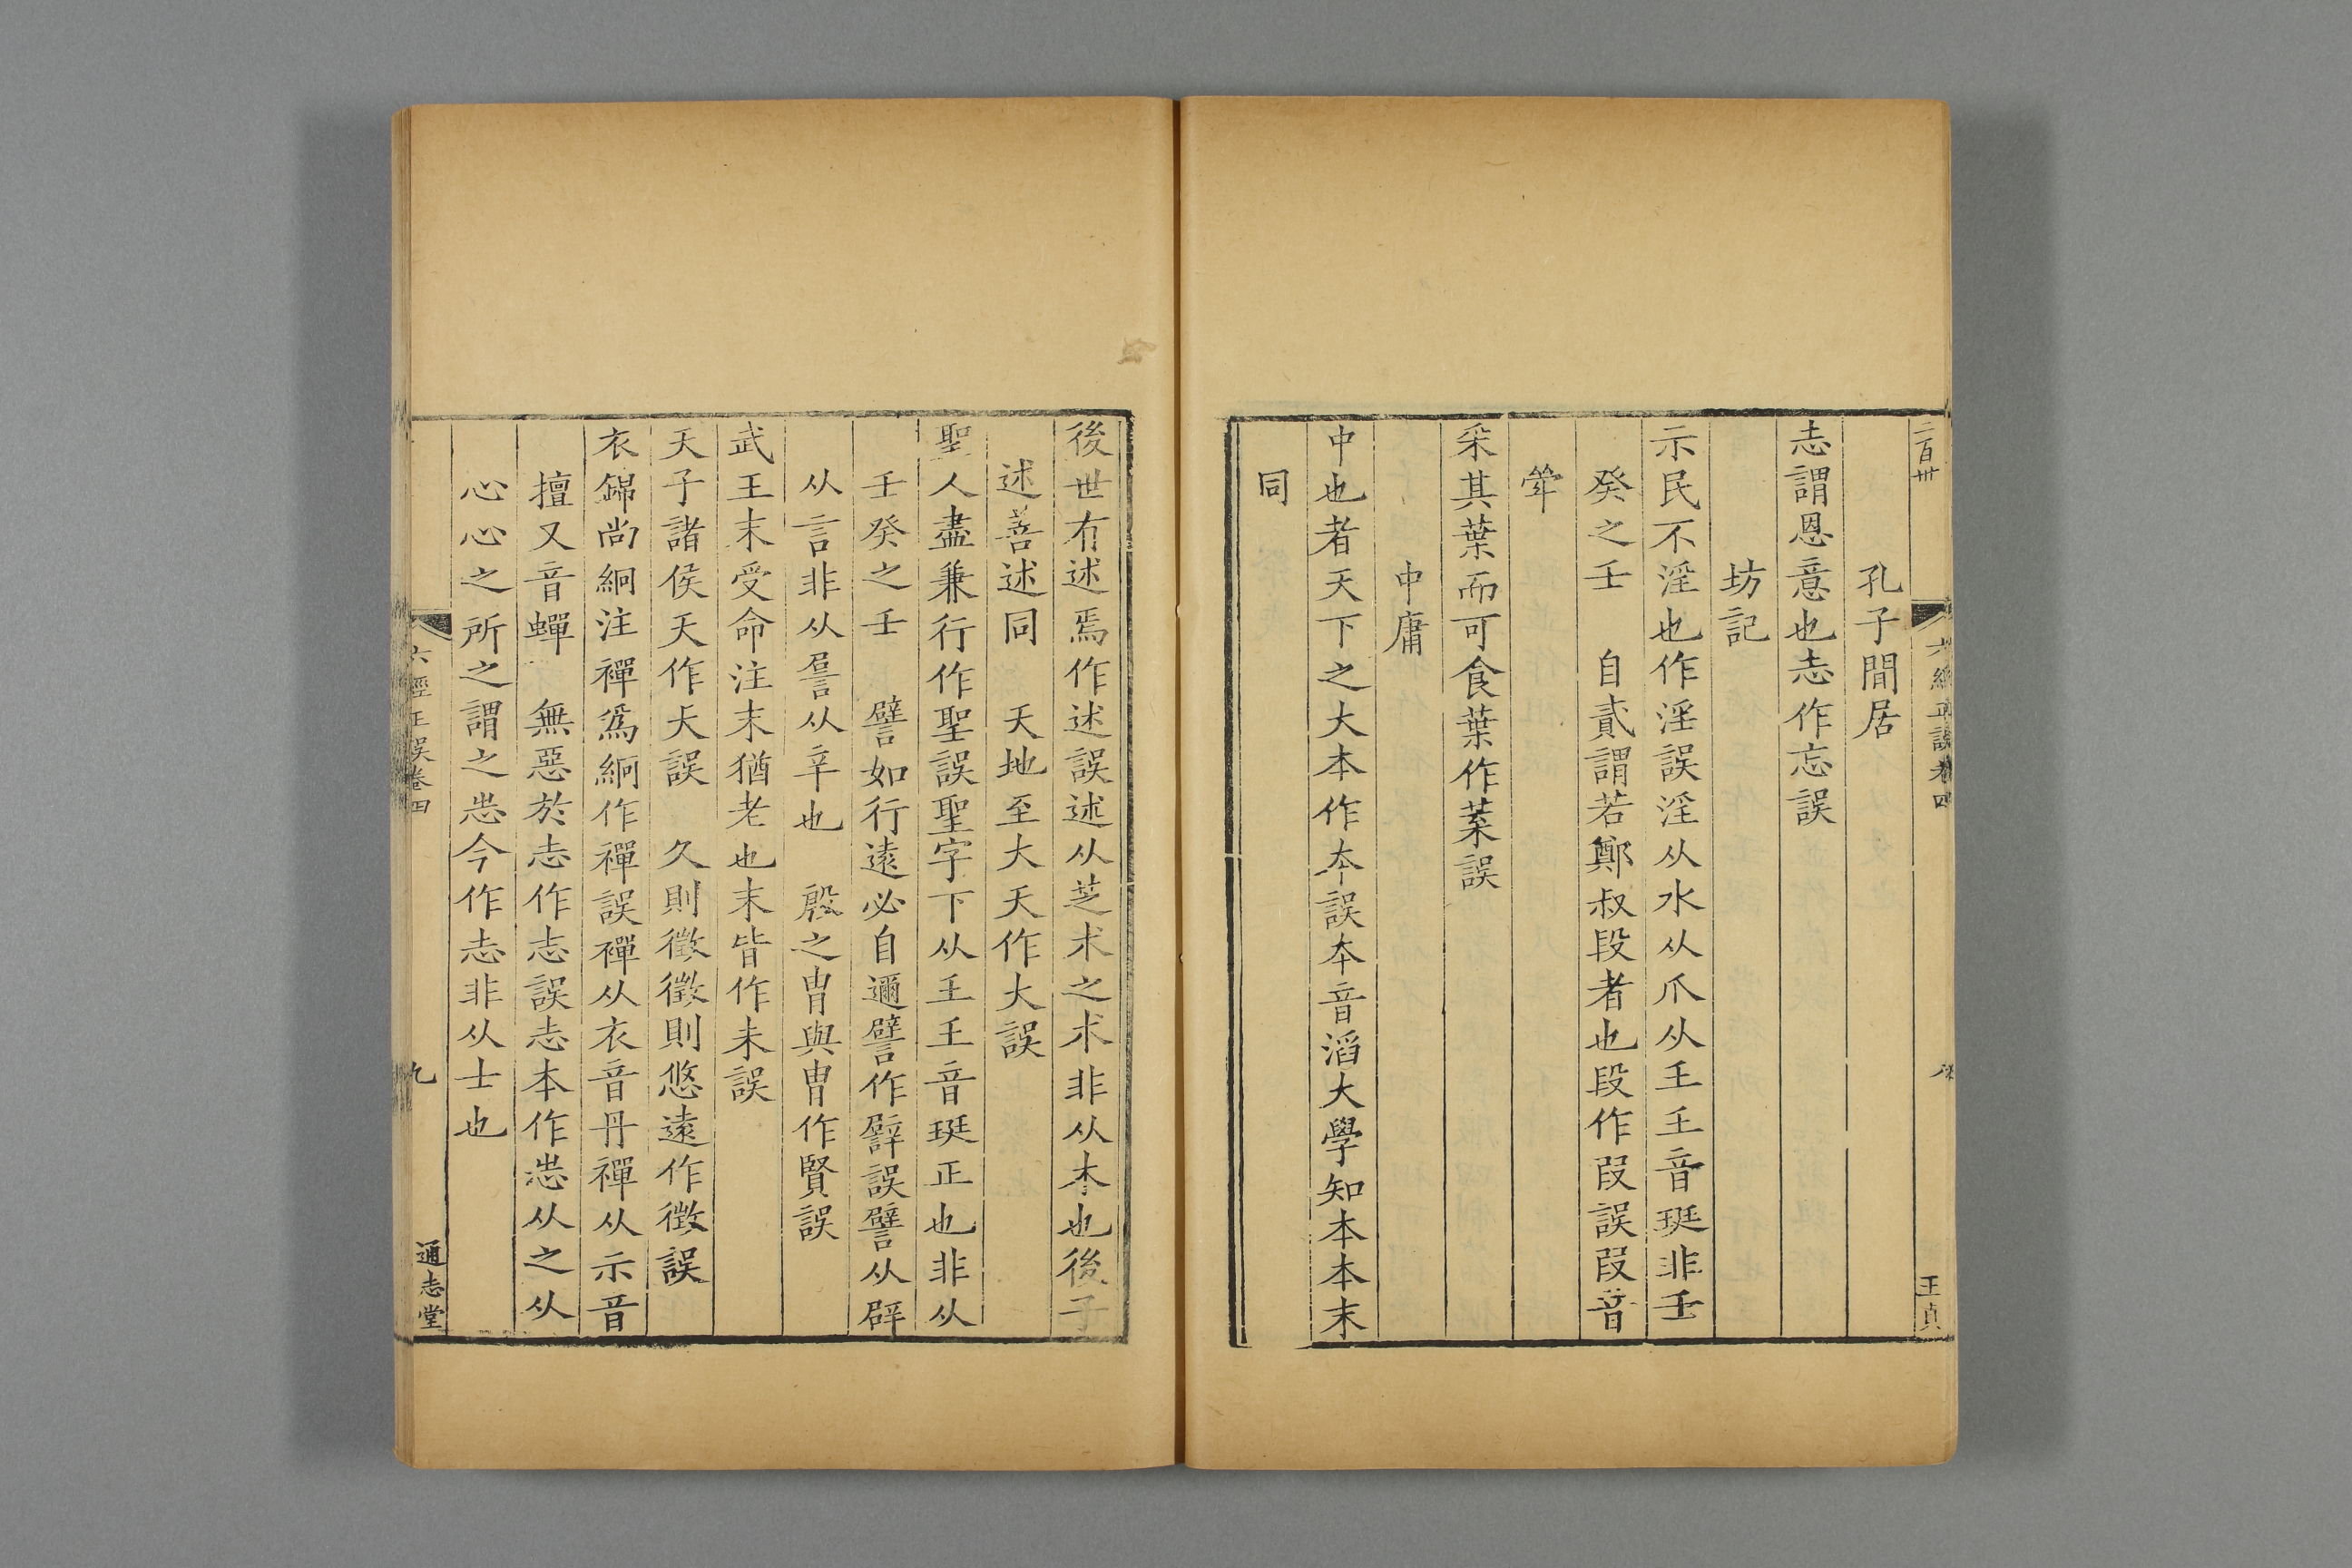 二百卅
六經正誤卷四
八
王貞
孔子閒居
志謂恩意也志作忘誤
坊記
示民不淫也作滛誤淫从水从爪从𡈼𡈼音珽非壬
癸之壬　自貳謂若鄭叔段者也段作叚誤叚音
斝
采其葉而可食葉作葉誤
中庸
中也者天下之大本作夲誤夲音滔大學知本本末
同
後世有述焉作述誤述从芝朮之朮非从木也後子
述善述同　天地至大天作大誤
聖人盡兼行作聖誤聖字下从𡈼𡈼音珽正也非从
壬癸之壬　譬如行遠必自邇譬作𧩲誤譬从辟
从言非从𧩲从辛也　殷之冑與冑作賢誤
武王末受命注末猶老也末皆作未誤
天子諸侯天作夭誤　久則徵徵則悠遠作徴誤
衣錦尚絅注襌爲絅作禪誤襌从衣音丹禪从示音
擅又音蟬　無惡於志作志誤志本作㞢从之从
心心之所之謂之㞢今作志非从士也
六經正誤卷四
九
通志堂